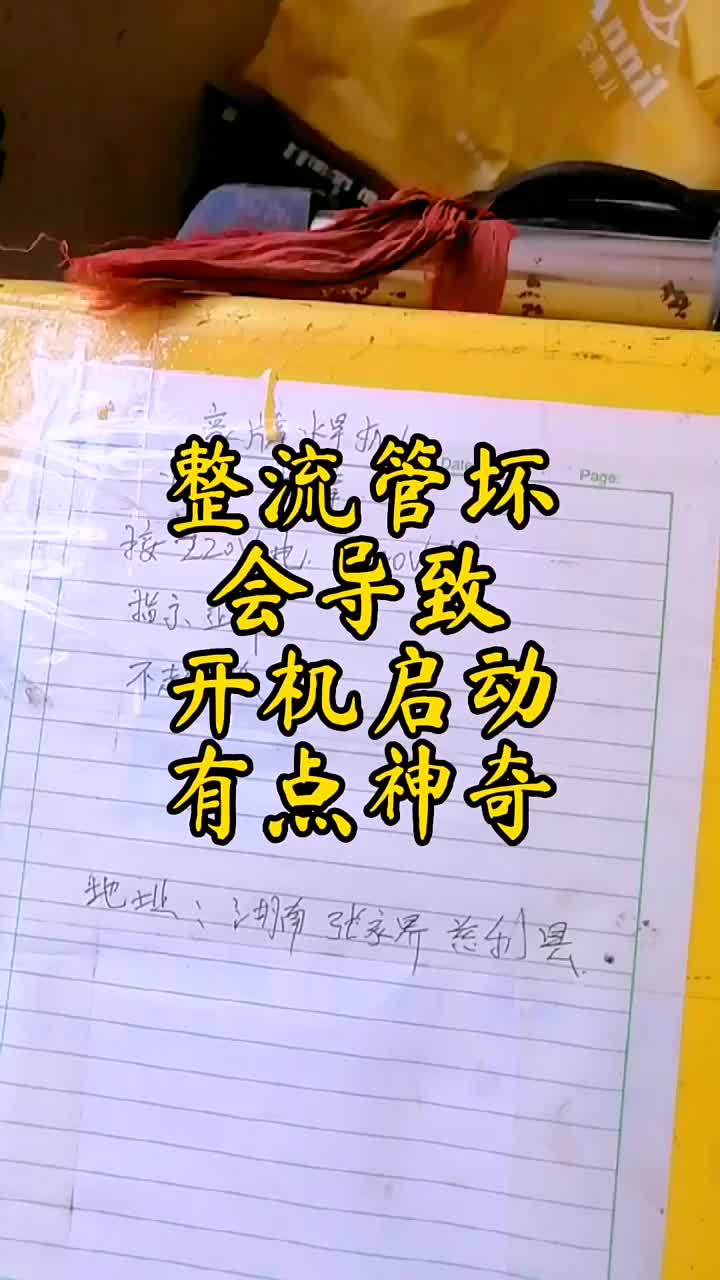 Annil
安奈儿
Date
Page:
整流管坏
会导致
开机启动
有点神奇
接220V电
指示
不
地址：湖南张家界慈利县.